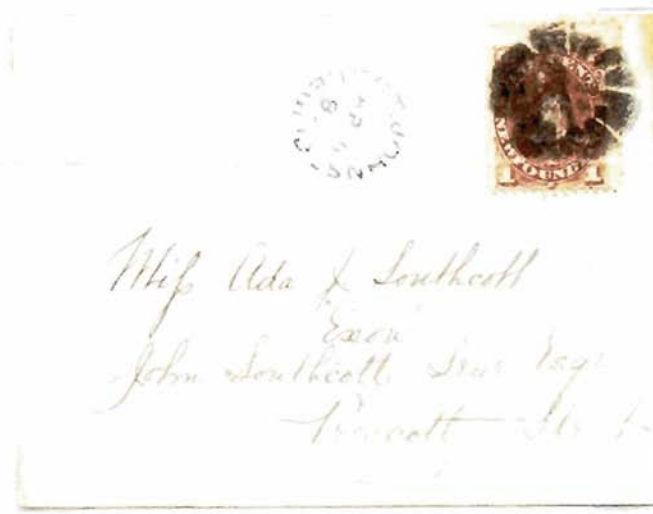 NEWFOUNDLAND
1 1
Miss Ada J Southcott
"Exon"
John Southcott Senr Esqr
Prescott Str